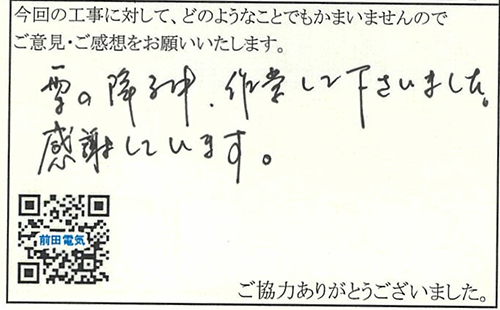 今回の工事に対して、どのようなことでもかまいませんので
ご意見・ご感想をお願いいたします。
雪の降る中、作業して下さいました。
感謝しています。
前田電気
ご協力ありがとうございました。